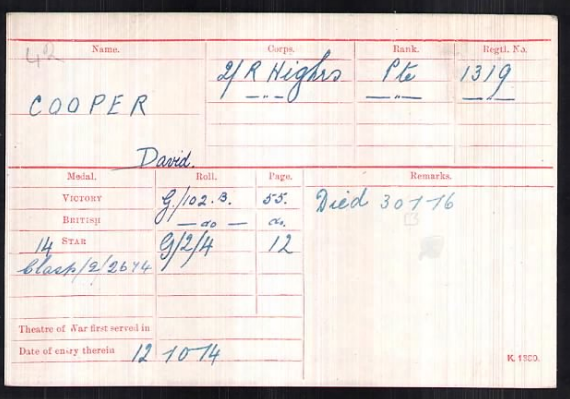 42
Name. Corps. Rank. Regtl. No.
2/R Highrs Pte 1319
COOPER — " — — " — — " —
David.
Medal. Roll. Page. Remarks.
VICTORY G/102.B. 55. Died 30-7-16
BRITISH — do — do.
14 STAR G/2/4 12
Clasp/E/2674
Theatre of War first served in
Date of entry therein 12-10-14
K. 1380.